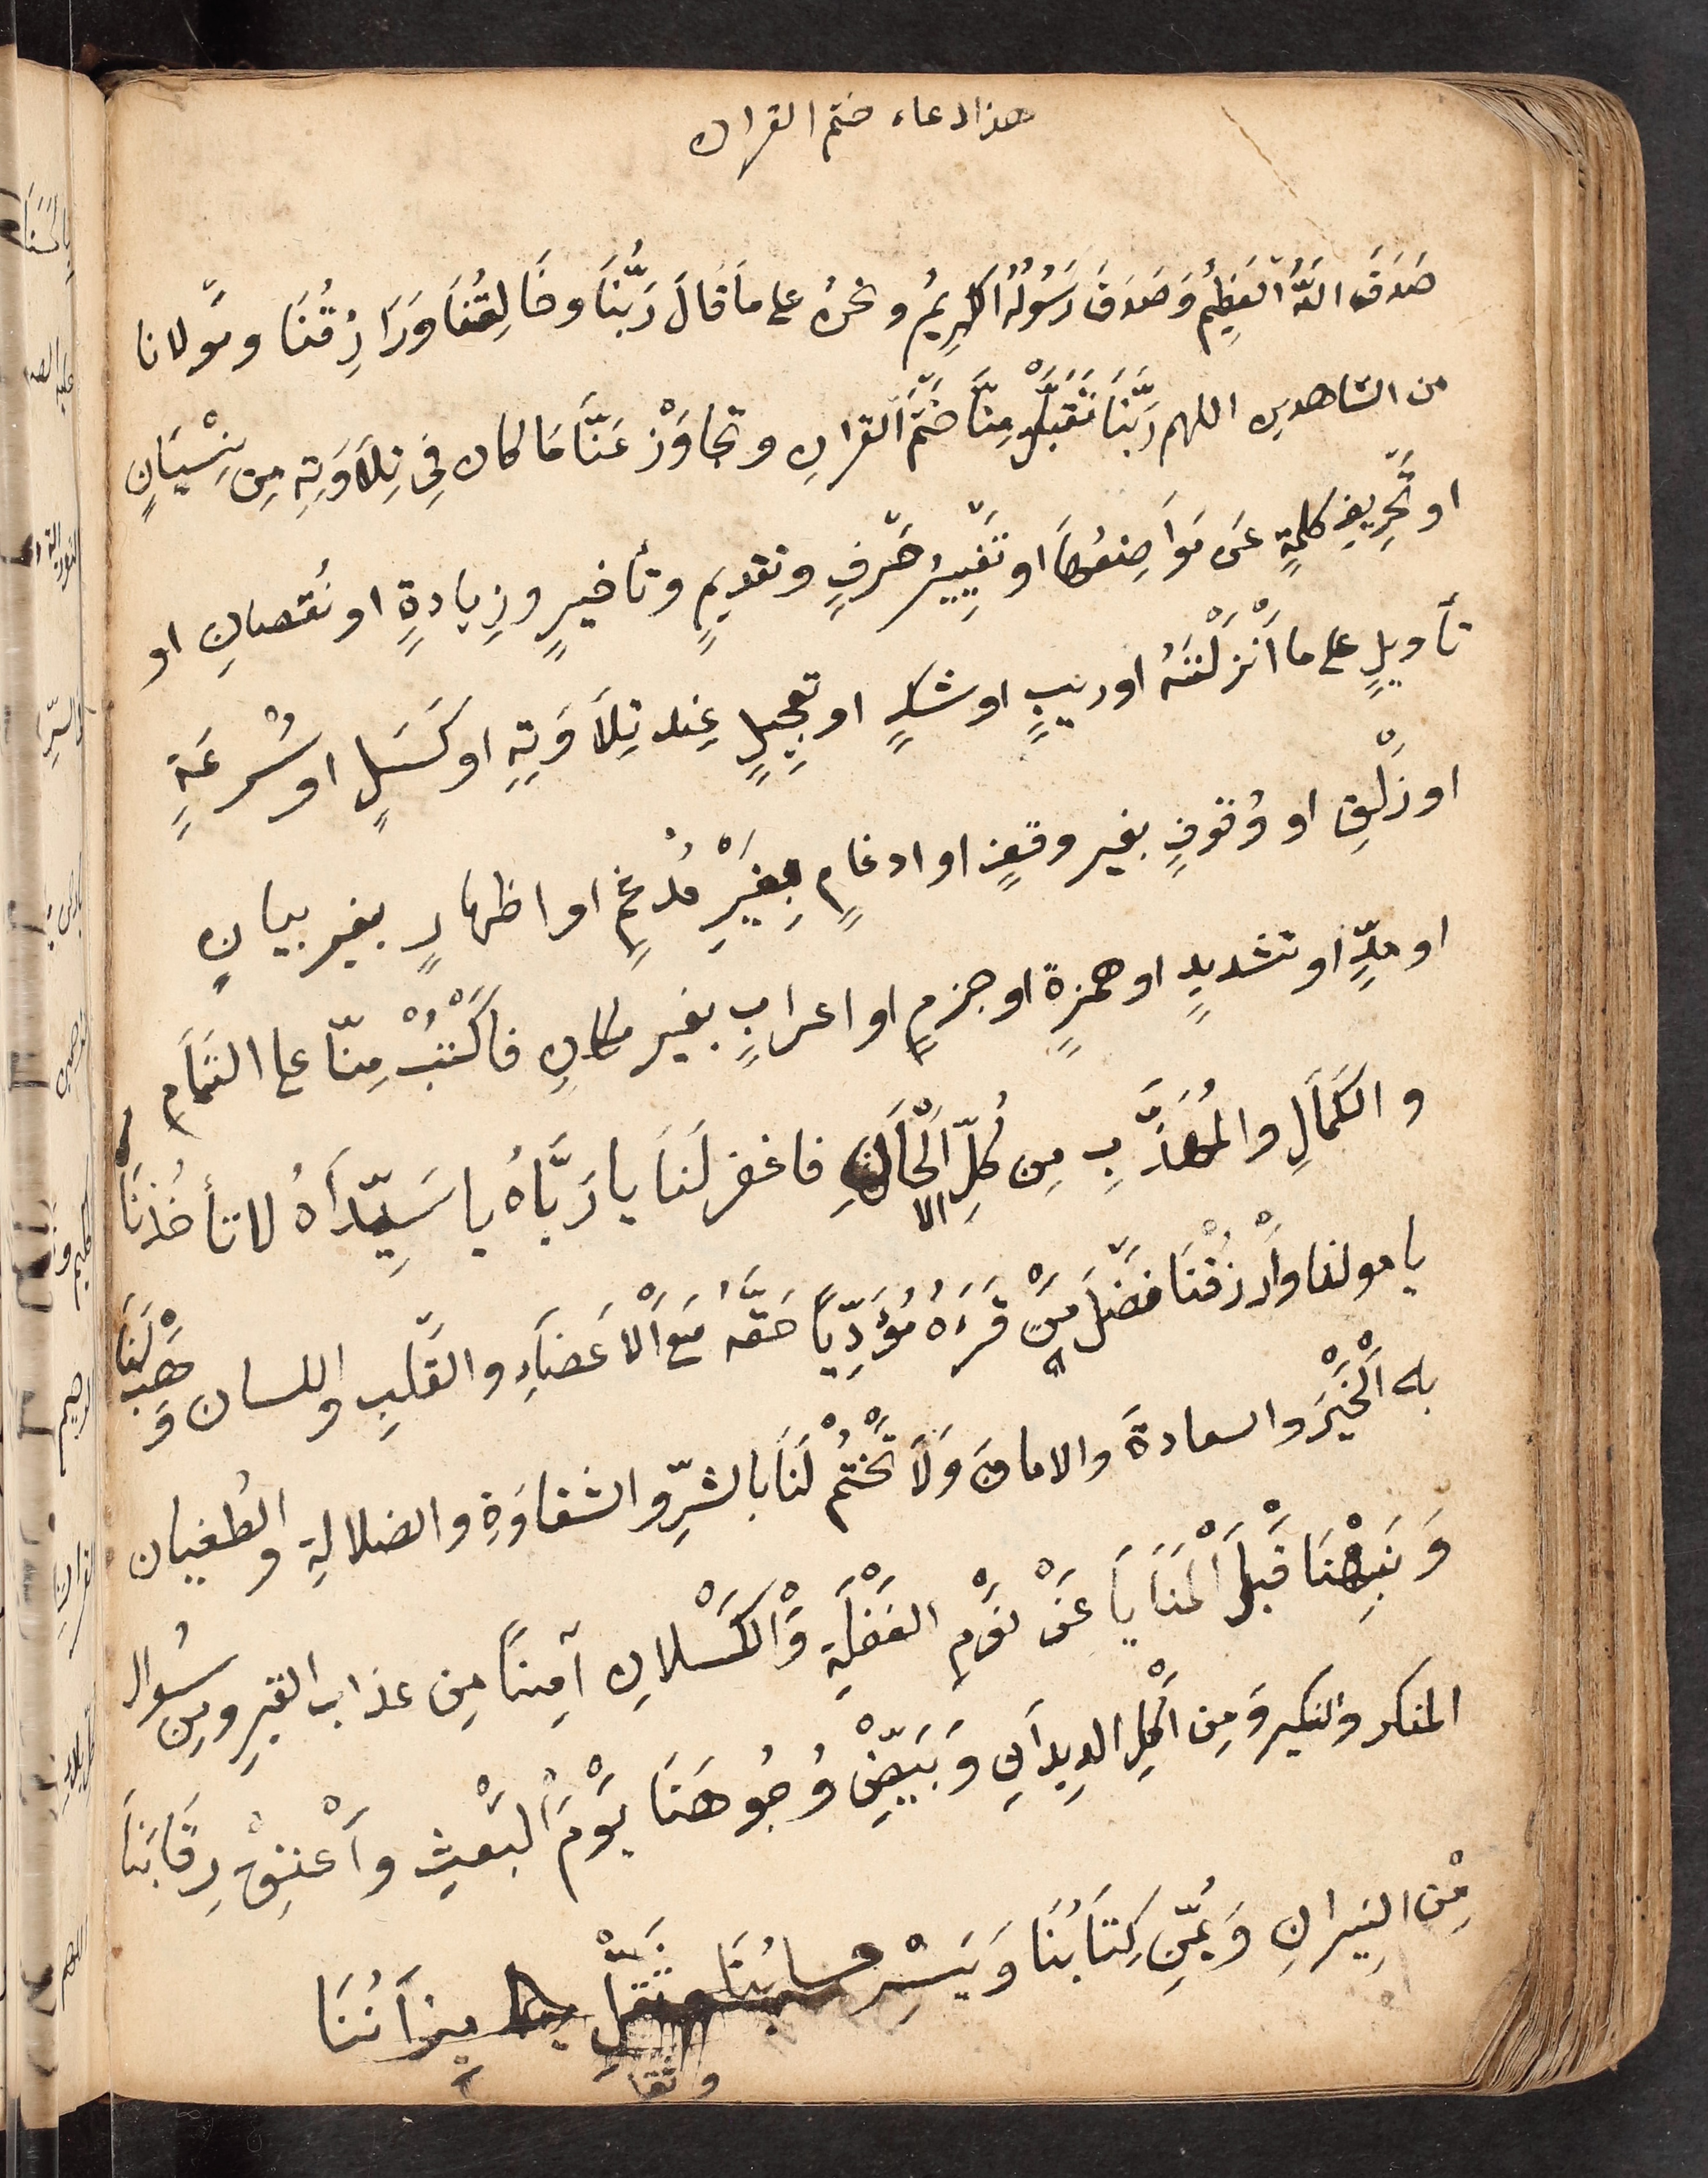 هذا دعاء ختم القران
صَدَقَ اللهُ الْعَظِيمُ وَصَدَقَ رَسُولُهُ الْكَرِيمُ ونحن على مَا قَالَ رَبُّنَا وخَالِقُنَا وَرَازِقُنَا ومَولانا
من الشاهدين اللهم رَبَّنَا تَقَبَّلْ مِنَّا خَتْمَ القرانِ وتجاوَزْ عَنَّا مَا كان فِي تِلَاوَتِهِ مِن نِسْيَانٍ
او تَحْرِيفِ كلمةٍ عَن مَوَاضِعِهَا او تَغْيِيرِ حَرْفٍ وتقديمٍ وتأخيرٍ وزِيادةٍ او نُقصانٍ او
تأويلٍ على ما اَنْزَلْتَهُ او ريبٍ او شكٍ او تعجيلٍ عِند تِلَاوَتِهِ او كَسَلٍ او سُرْعَةٍ
او زَلْقٍ او وُقوفٍ بغير وقفٍ او ادغامٍ بِغَيْرِ مُدْغَمٍ او اظهارٍ بغير بيانٍ
او مدٍّ او تشديدٍ او همزةٍ او جزمٍ او اعرابٍ بغير مكانٍ فاكْتُبْ مِنّا على التَّمَامِ
والكَمَالِ والمُهَذَّبِ مِن كُلِّ اَلْحَانِ فاغفر لَنَا يا رَبَّاهُ يا سَيِّدَاهُ لا تأخُذنَا
يا مولنا وارْزُقْنَا فَضْلَ مَنْ قَرَءَهُ مُؤَدِّيًا حَقَّهُ مَعَ الْاَعضَاءِ والقَلْبِ واللسان وَهَبْ لَنَا
به الْخَيْرَ والسعادةَ والامانَ وَلَا تَخْتِمْ لَنَا بالشرِّ والشقاوَةِ والضلالةِ والطُغيان
وَنَبِّهْنَا قَبْلَ الْمَنَايَا عَنْ نَوْمِ الغَفْلَةِ وَالْكَسْلَانِ آمِنًا مِن عذاب القبرِ ومِن سُوال
المنكر والنكير وَمِن اَكْلِ الدِيدَانِ وَبَيِّضْ وُجُوهَنَا يَوْمَ الْبَعْثِ واَعْتِقْ رِقَابَنَا
مِنْ النِيرانِ وَيَمِّن كِتَابَنَا وَيَسِّرْ حِسَابَنَا وثَقِّلْ مِيزَانَنَا